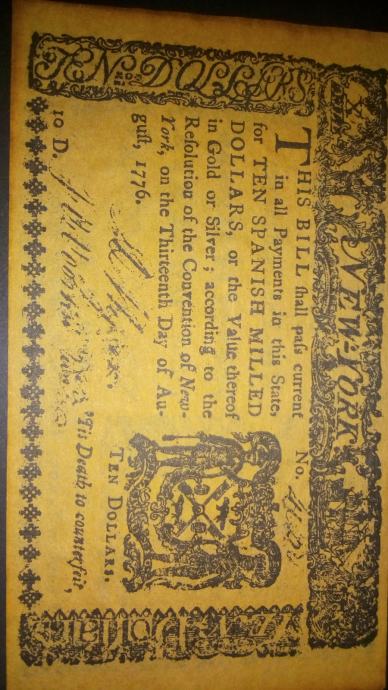 NEW-YORK
X
TEN DOLLARS
No.
THIS BILL ſhall paſs current
in all Payments in this State,
for TEN SPANISH MILLED
DOLLARS, or the Value thereof
in Gold or Silver; according to the
Reſolution of the Convention of New-
York, on the Thirteenth Day of Au-
guſt, 1776.
TEN DOLLARS.
10 D.
'Tis Death to counterfeit,